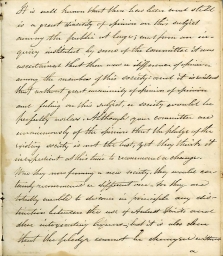 It is well known that there has been and still
is a great diversity of opinion on this subject
among the public at large; and from an in-
quiry instituted by some of the committee it was
ascertained that there was a difference of opinion
among the members of this society and it is evident
that without great unanimity of opinion of opinion
and feeling on this subject, a society would be
perfectly useless. Although your committee are
unanimously of the opinion that the pledge of the
existing society is not the best, yet they think it
inexpedient at this time to recommend a change.
Were they now forming a new society, they would cer-
tainly recommend a different one, for they are
wholly unable to discern in principle any dis-
tinction between the use of Ardent Spirits and
other intoxicating liquors, but it is also clear
that the pledge cannot be changed without
a